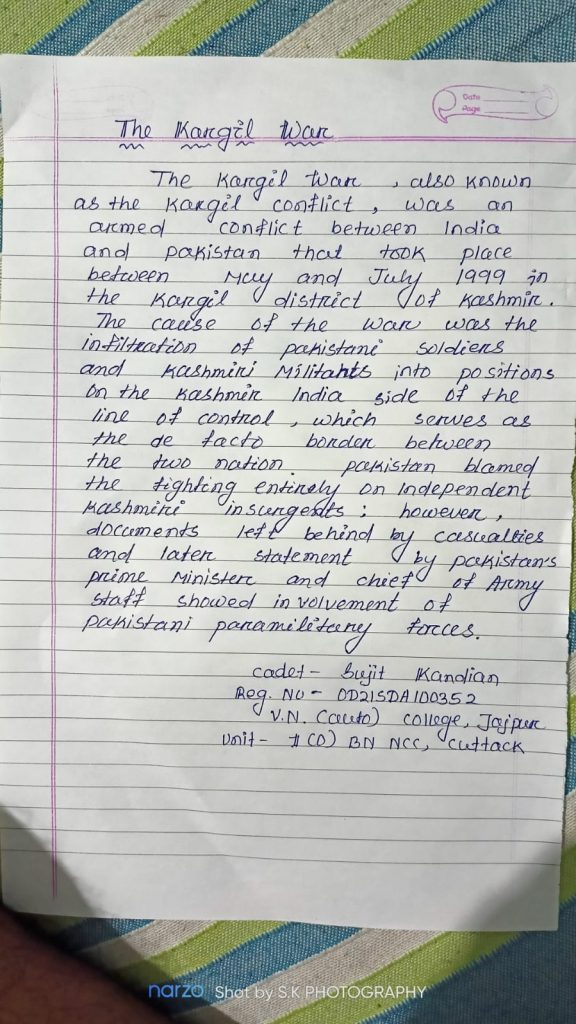 Date
Page
The Kargil War
The Kargil War , also known
as the Kargil conflict , was an
armed conflict between India
and pakistan that took place
between May and July 1999 in
the Kargil district of Kashmir.
The cause of the war was the
infiltration of pakistani soldiers
and Kashmiri Militants into positions
on the Kashmir India side of the
line of control , which serves as
the de facto border between
the two nation. pakistan blamed
the fighting entirely on Independent
Kashmiri insurgests ; however ,
documents left behind by casualties
and later statement by pakistan's
prime Minister and chief of Army
staff showed involvement of
pakistani paramilitary forces.
cadet - Sujit Kandian
Reg. No - OD21SDA100352
V.N. (auto) college, Jajpur
Unit - 7 (O) BN NCC, Cuttack
narzo Shot by S.K PHOTOGRAPHY